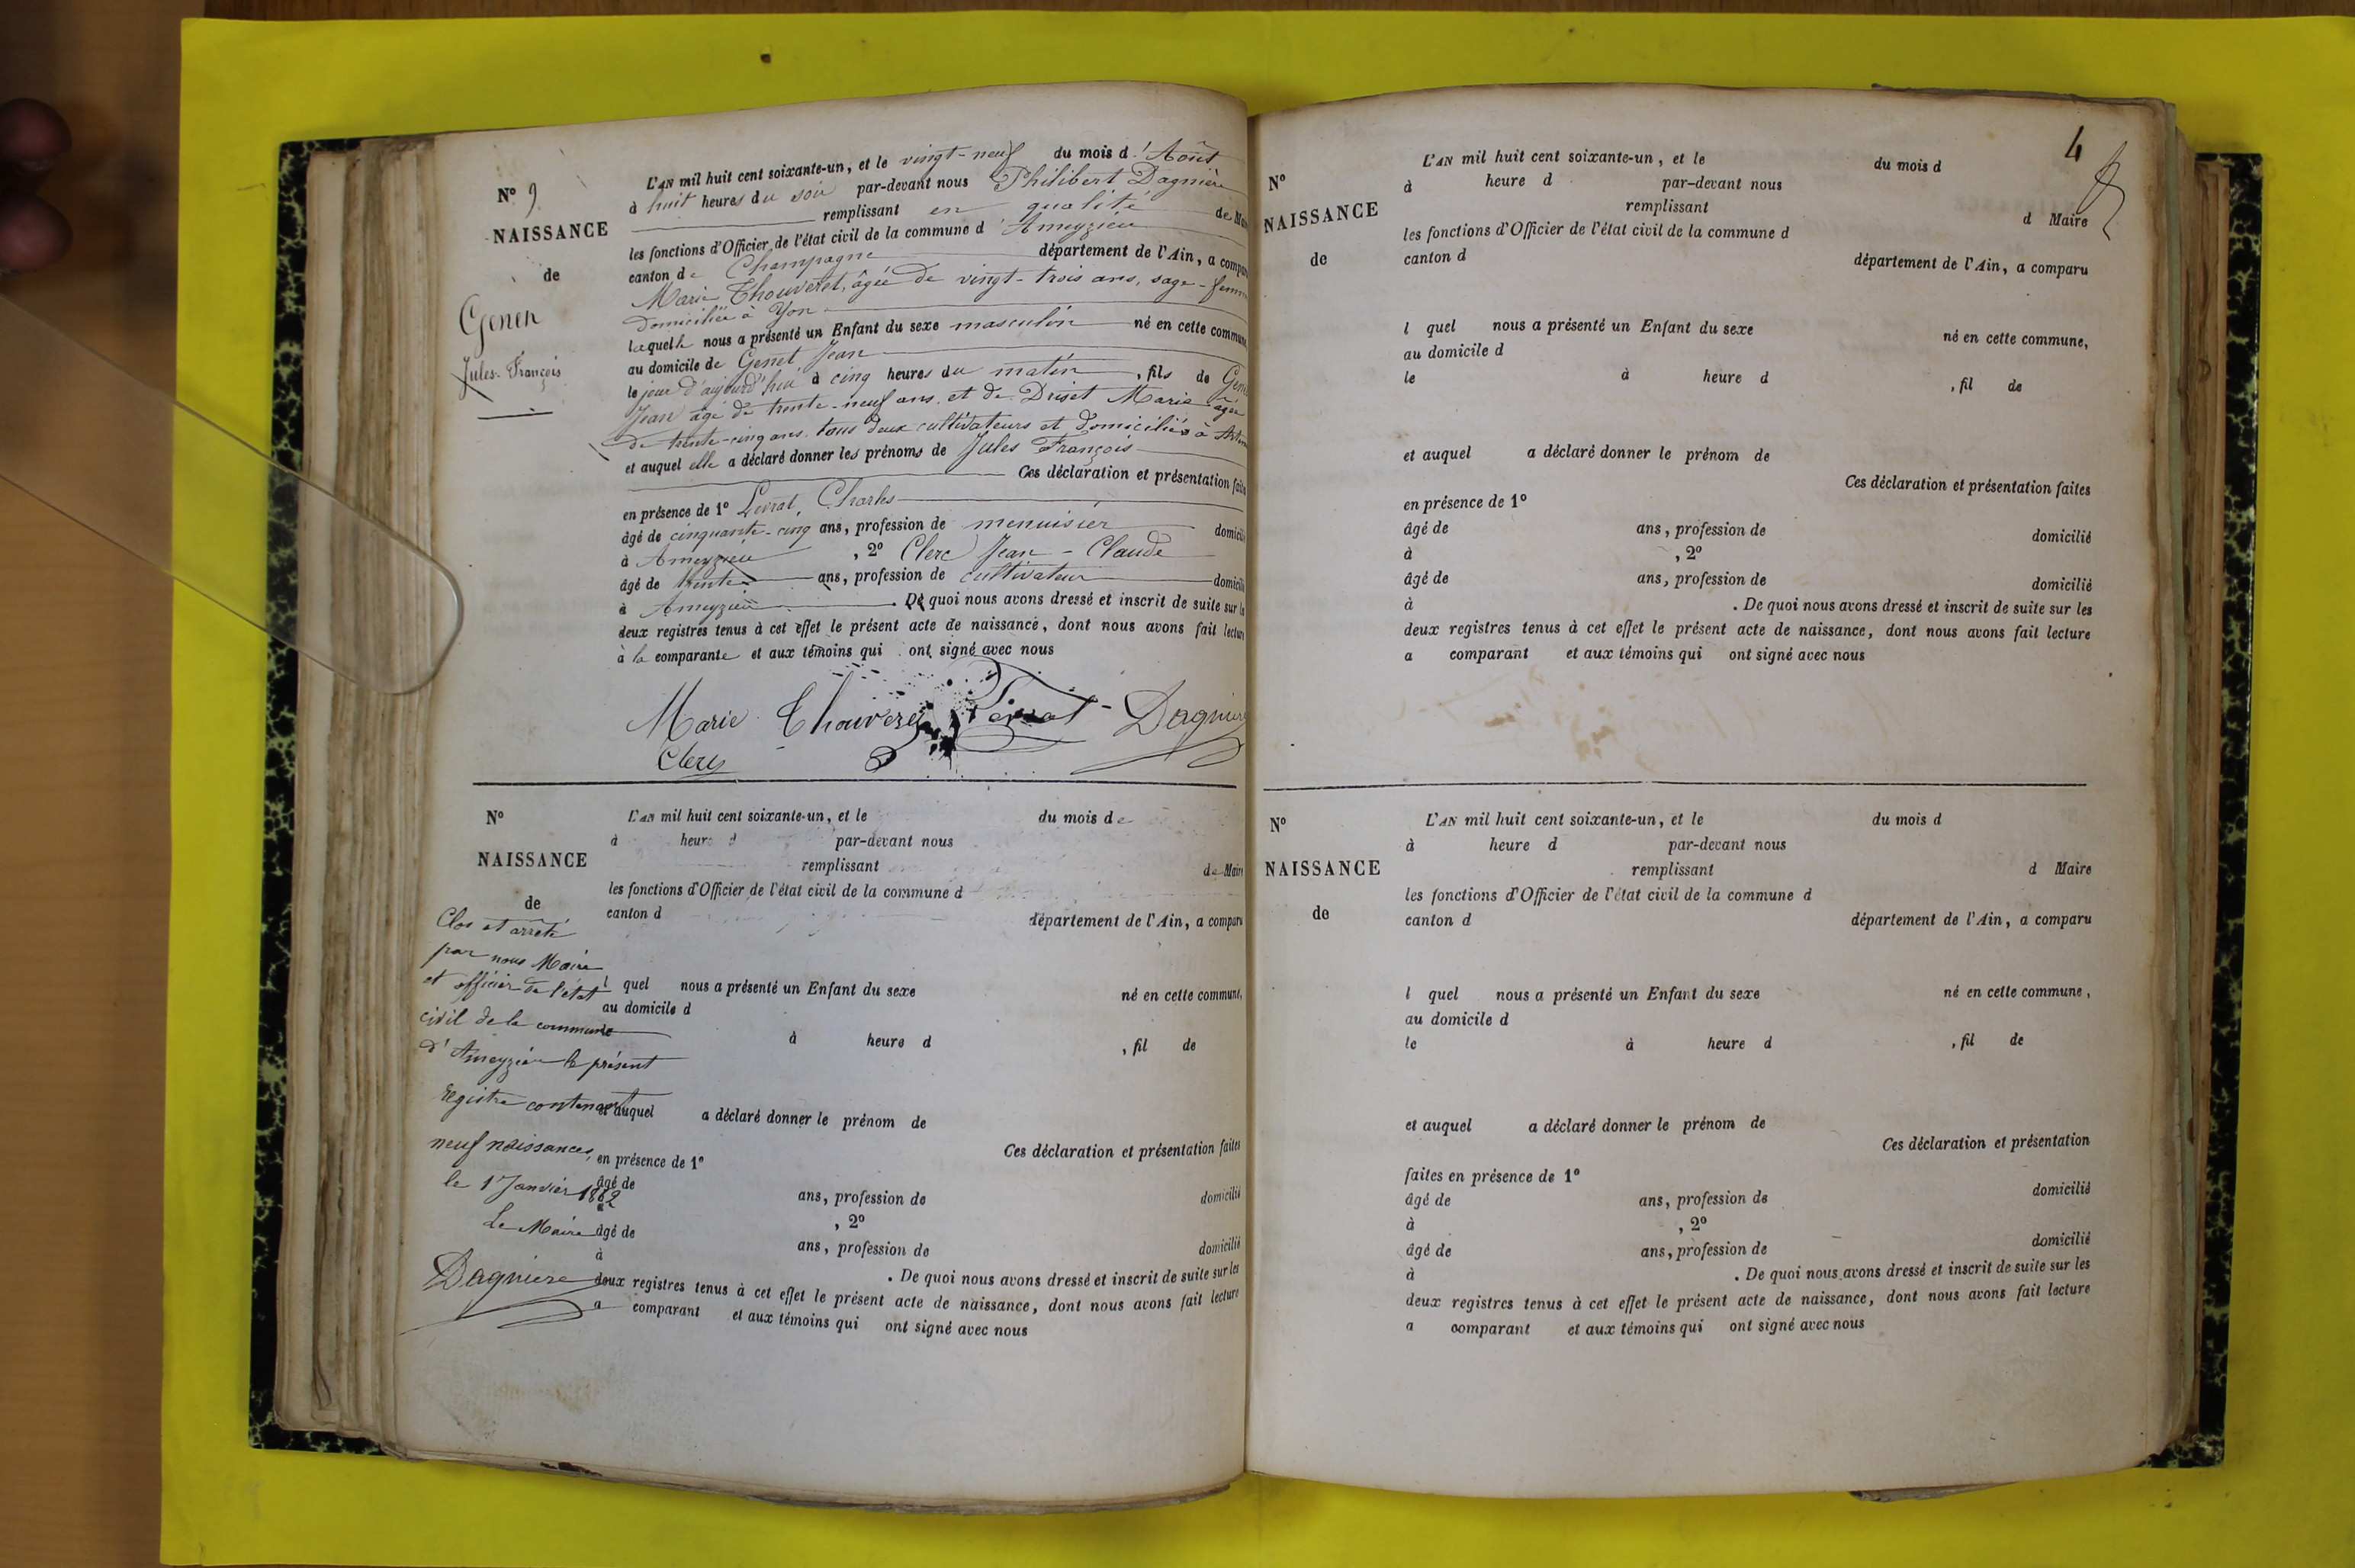 N° 9
NAISSANCE
de
Genen
Jules-François
L'AN mil huit cent soixante-un, et le vingt-neuf du mois d'Août
à huit heures du soir par-devant nous Philibert Dagnière
remplissant en qualité de
les fonctions d'Officier de l'état civil de la commune d'Ameyzieu
canton de Champagne département de l'Ain, a
Marie Thouveret, âgée de vingt-trois ans, sage-
domiciliée à Yon
laquelle nous a présenté un Enfant du sexe masculin né en cette
au domicile de Genet Jean
le jour d'aujourd'hui à cinq heures du matin, fils de
Jean âgé de trente-neuf ans et de Driset Marie âgée
de trente-cinq ans tous deux cultivateurs et domiciliés à
et auquel elle a déclaré donner les prénoms de Jules François
Ces déclaration et présentation
en présence de 1° Charles
âgé de cinquante-cinq ans, profession de menuisier
à Ameyzieu, 2° Clerc Jean-Claude
âgé de trente ans, profession de cultivateur
à Ameyzieu. De quoi nous avons dressé et inscrit de suite sur
deux registres tenus à cet effet le présent acte de naissance, dont nous avons fait
à la comparante et aux témoins qui ont signé avec nous
Marie Dagnière
N°
NAISSANCE
de
Clos et arrêté
par nous Maire
et officier de l'état
civil de la commune
d'Ameyzieu le présent
registre contenant
neuf naissances
le 1er Janvier 1862
Le Maire
Dagniere
L'AN mil huit cent soixante-un, et le du mois de
à heure d par-devant nous
remplissant de Maire
les fonctions d'Officier de l'état civil de la commune d
canton d département de l'Ain, a comparu
l quel nous a présenté un Enfant du sexe né en cette commune,
au domicile d
à heure d , fil de
et auquel a déclaré donner le prénom de
Ces déclaration et présentation faites
en présence de 1°
âgé de ans, profession de domicilié
, 2°
âgé de ans, profession de domicilié
à . De quoi nous avons dressé et inscrit de suite sur les
deux registres tenus à cet effet le présent acte de naissance, dont nous avons fait lecture
a comparant et aux témoins qui ont signé avec nous
4
N°
NAISSANCE
de
L'AN mil huit cent soixante-un, et le du mois d
à heure d par-devant nous
remplissant d Maire
les fonctions d'Officier de l'état civil de la commune d
canton d département de l'Ain, a comparu
l quel nous a présenté un Enfant du sexe né en cette commune,
au domicile d
le à heure d , fil de
et auquel a déclaré donner le prénom de
Ces déclaration et présentation faites
en présence de 1°
âgé de ans, profession de domicilié
à , 2°
âgé de ans, profession de domicilié
à . De quoi nous avons dressé et inscrit de suite sur les
deux registres tenus à cet effet le présent acte de naissance, dont nous avons fait lecture
a comparant et aux témoins qui ont signé avec nous
N°
NAISSANCE
de
L'AN mil huit cent soixante-un, et le du mois d
à heure d par-devant nous
remplissant d Maire
les fonctions d'Officier de l'état civil de la commune d
canton d département de l'Ain, a comparu
l quel nous a présenté un Enfant du sexe né en cette commune,
au domicile d
le à heure d , fil de
et auquel a déclaré donner le prénom de
Ces déclaration et présentation
faites en présence de 1°
âgé de ans, profession de domicilié
à , 2°
âgé de ans, profession de domicilié
à . De quoi nous avons dressé et inscrit de suite sur les
deux registres tenus à cet effet le présent acte de naissance, dont nous avons fait lecture
a comparant et aux témoins qui ont signé avec nous